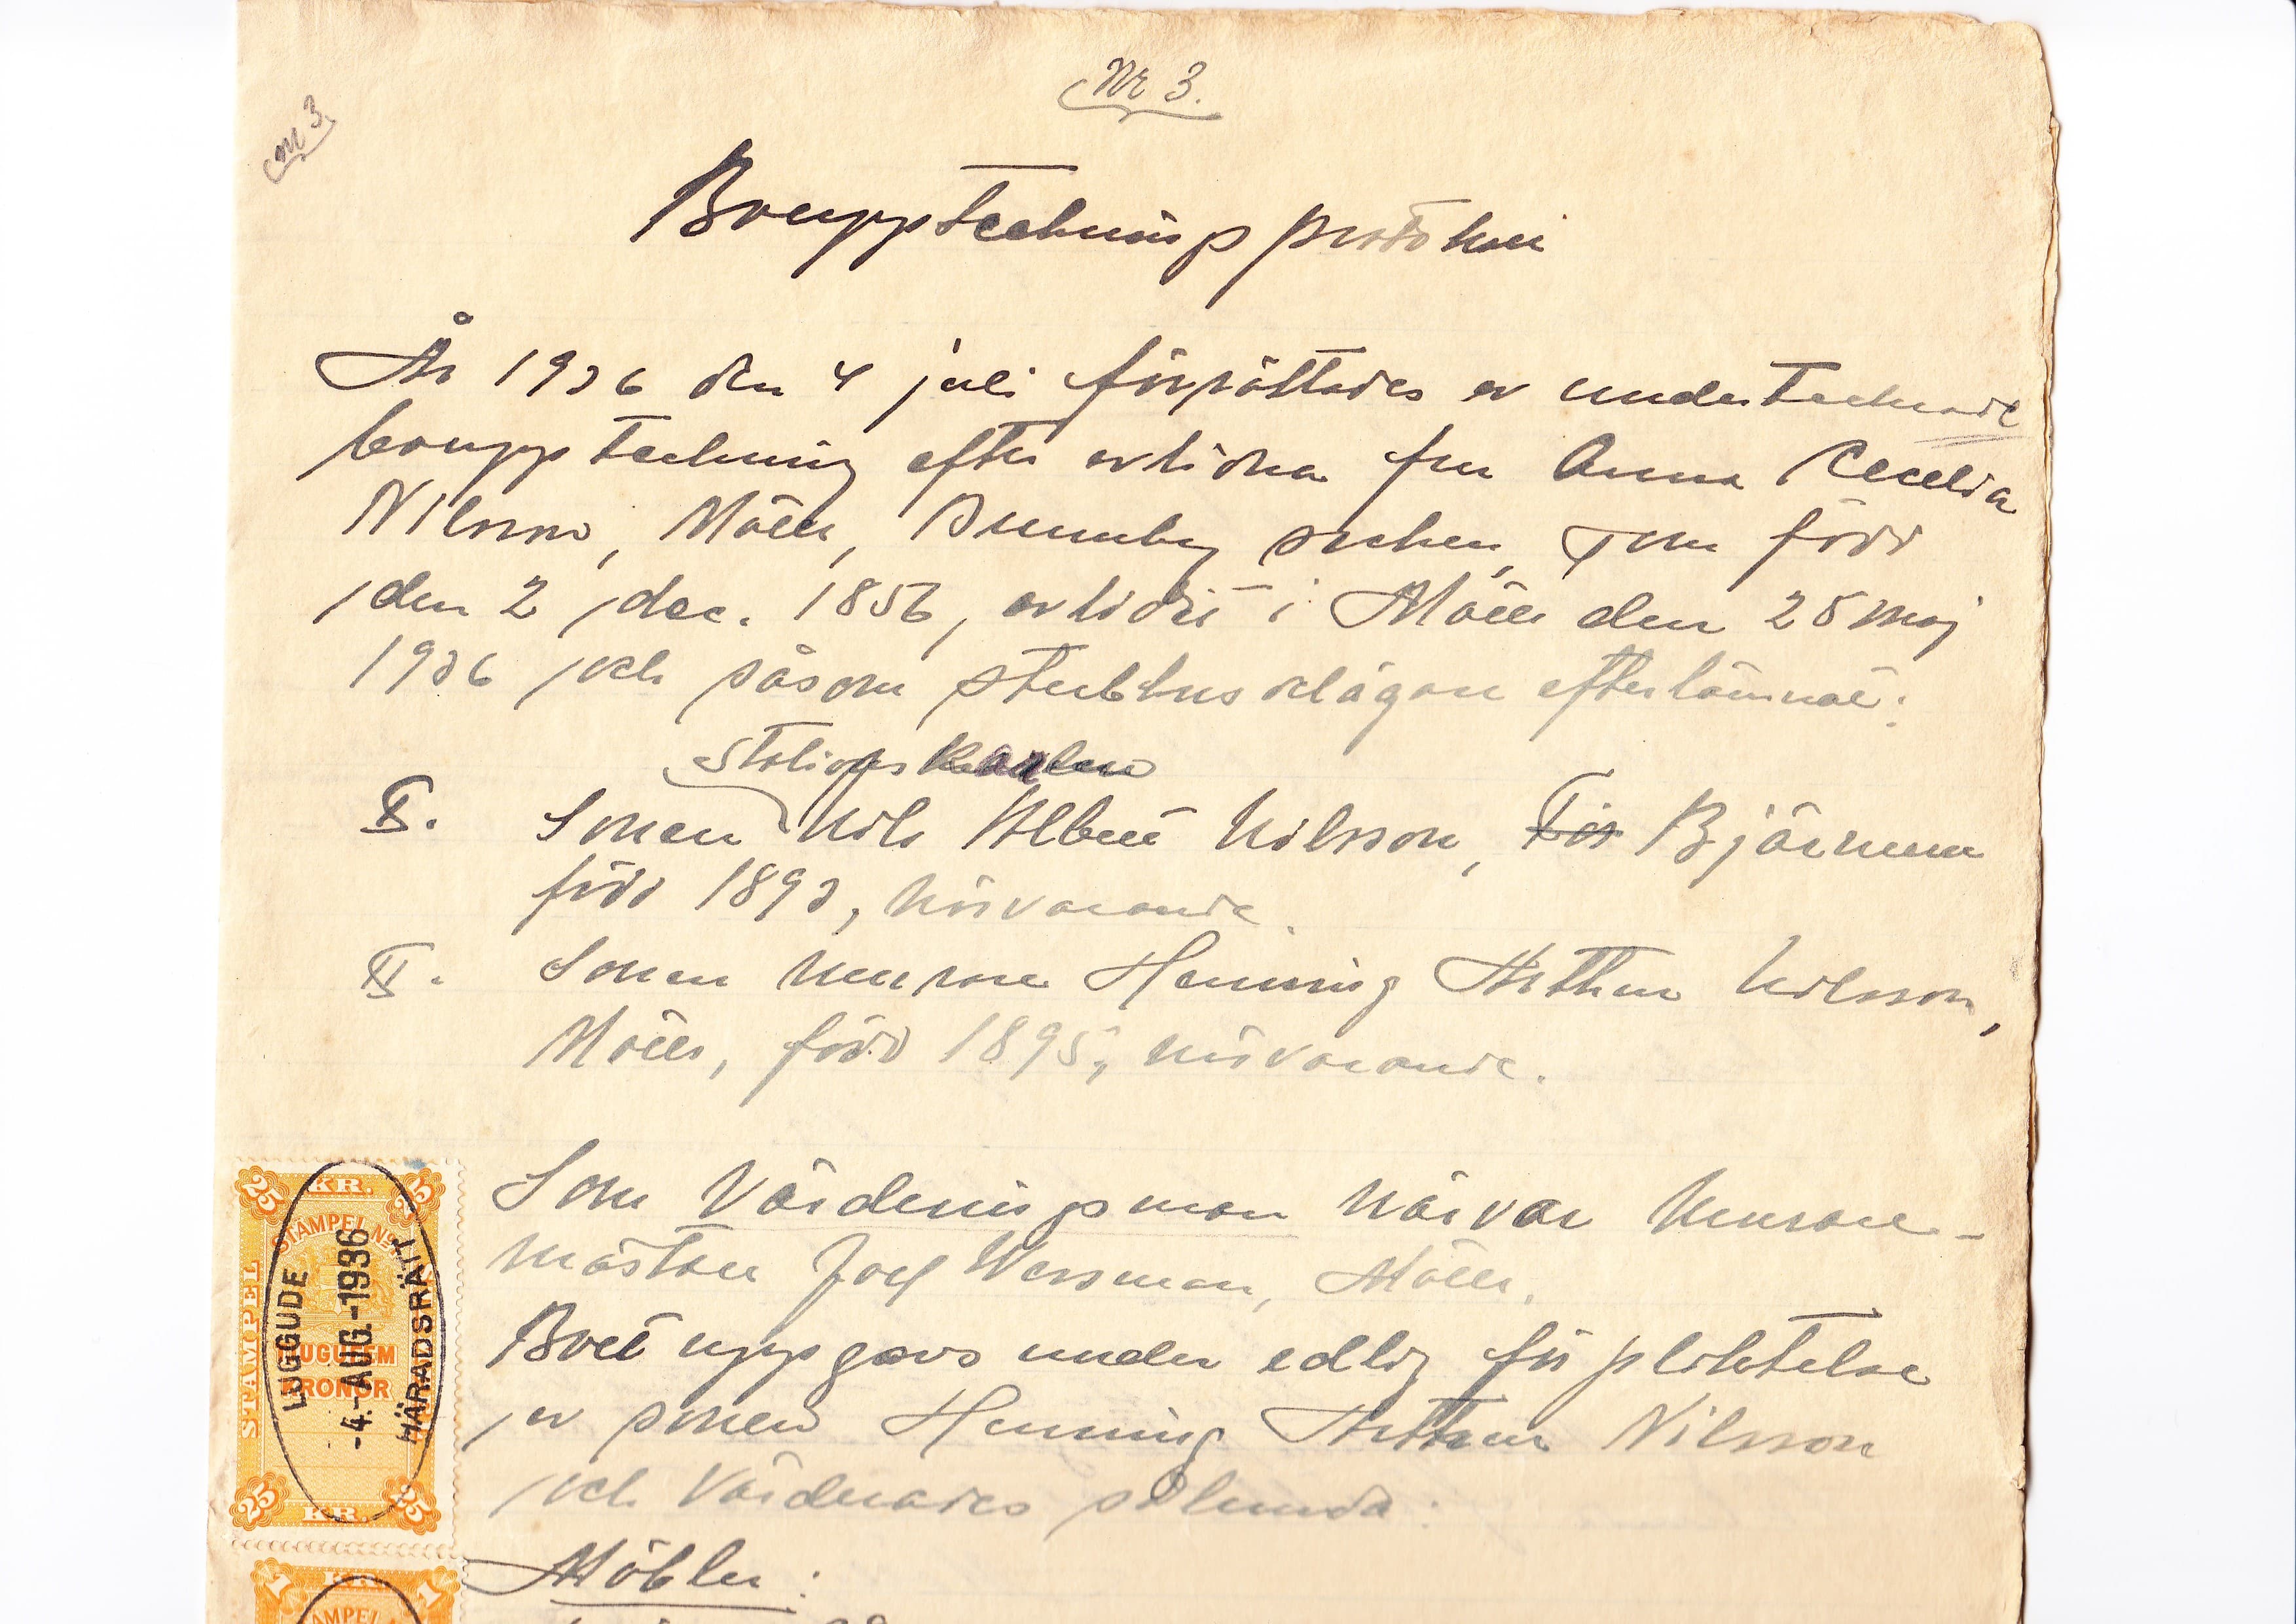 Nr 3.
Nr 3
Bouppteckningsprotokoll
År 1936 den 4 juli förrättades av undertecknade
bouppteckning efter avlidna fru Anna Cecelia
Nilsson, Mölle, Brunnby socken, som född
den 2 dec. 1856, avlidit i Mölle den 28 maj
1936 och såsom sterbhusdelägare efterlämnat:
Stationskarlen
I. Sonen Nils Albert Nilsson, Bjärnum
född 1893, närvarande.
II. Sonen murare Henning Arthur Nilsson,
Mölle, född 1895, närvarande.
Som Värderingsman närvar Murare-
mästare Joel Wessman, Mölle.
Boet uppgavs under edlig förpliktelse
av sonen Henning Arthur Nilsson
och Värderades sålunda:
Möbler:
25 KR. 25
STAMPEL No
STAMPEL
TJUGUFEM
KRONOR
25 KR. 25
LUGGUDE
-4.-AUG.-1936
HÄRADSRÄTT
1 KR. 1
STAMPEL